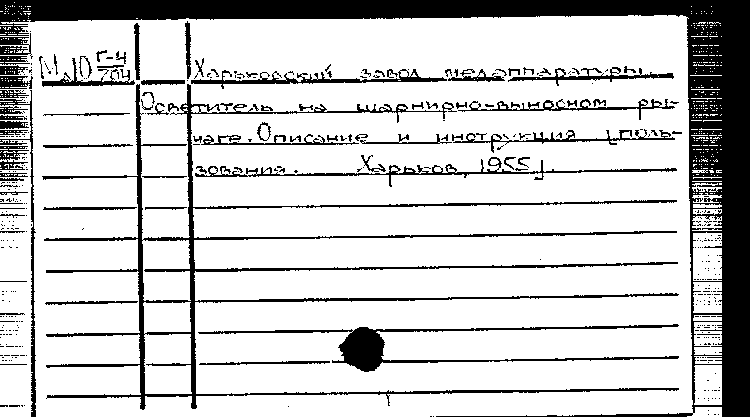 М10 Г-4/704 Харьковский завод медаппаратуры.
Осветитель на шарнирно-выносном ры-
чаге. Описание и инструкция [поль-
зования. Харьков, 1955].